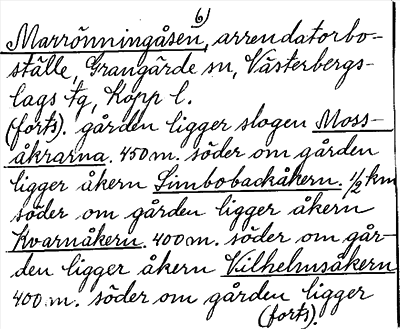 6)
Marrönningåsen, arrendatorbo-
ställe, Grangärde sn, Västerbergs-
lags tg, Kopp l.
(forts). gården ligger slogen Moss-
åkrarna. 450 m. söder om gården
ligger åkern Simbobackåkern. 1/2 km
söder om gården ligger åkern
Kvarnåkern. 400 m. söder om går-
den ligger åkern Vilhelmsåkern
400 m. söder om gården ligger
(forts).